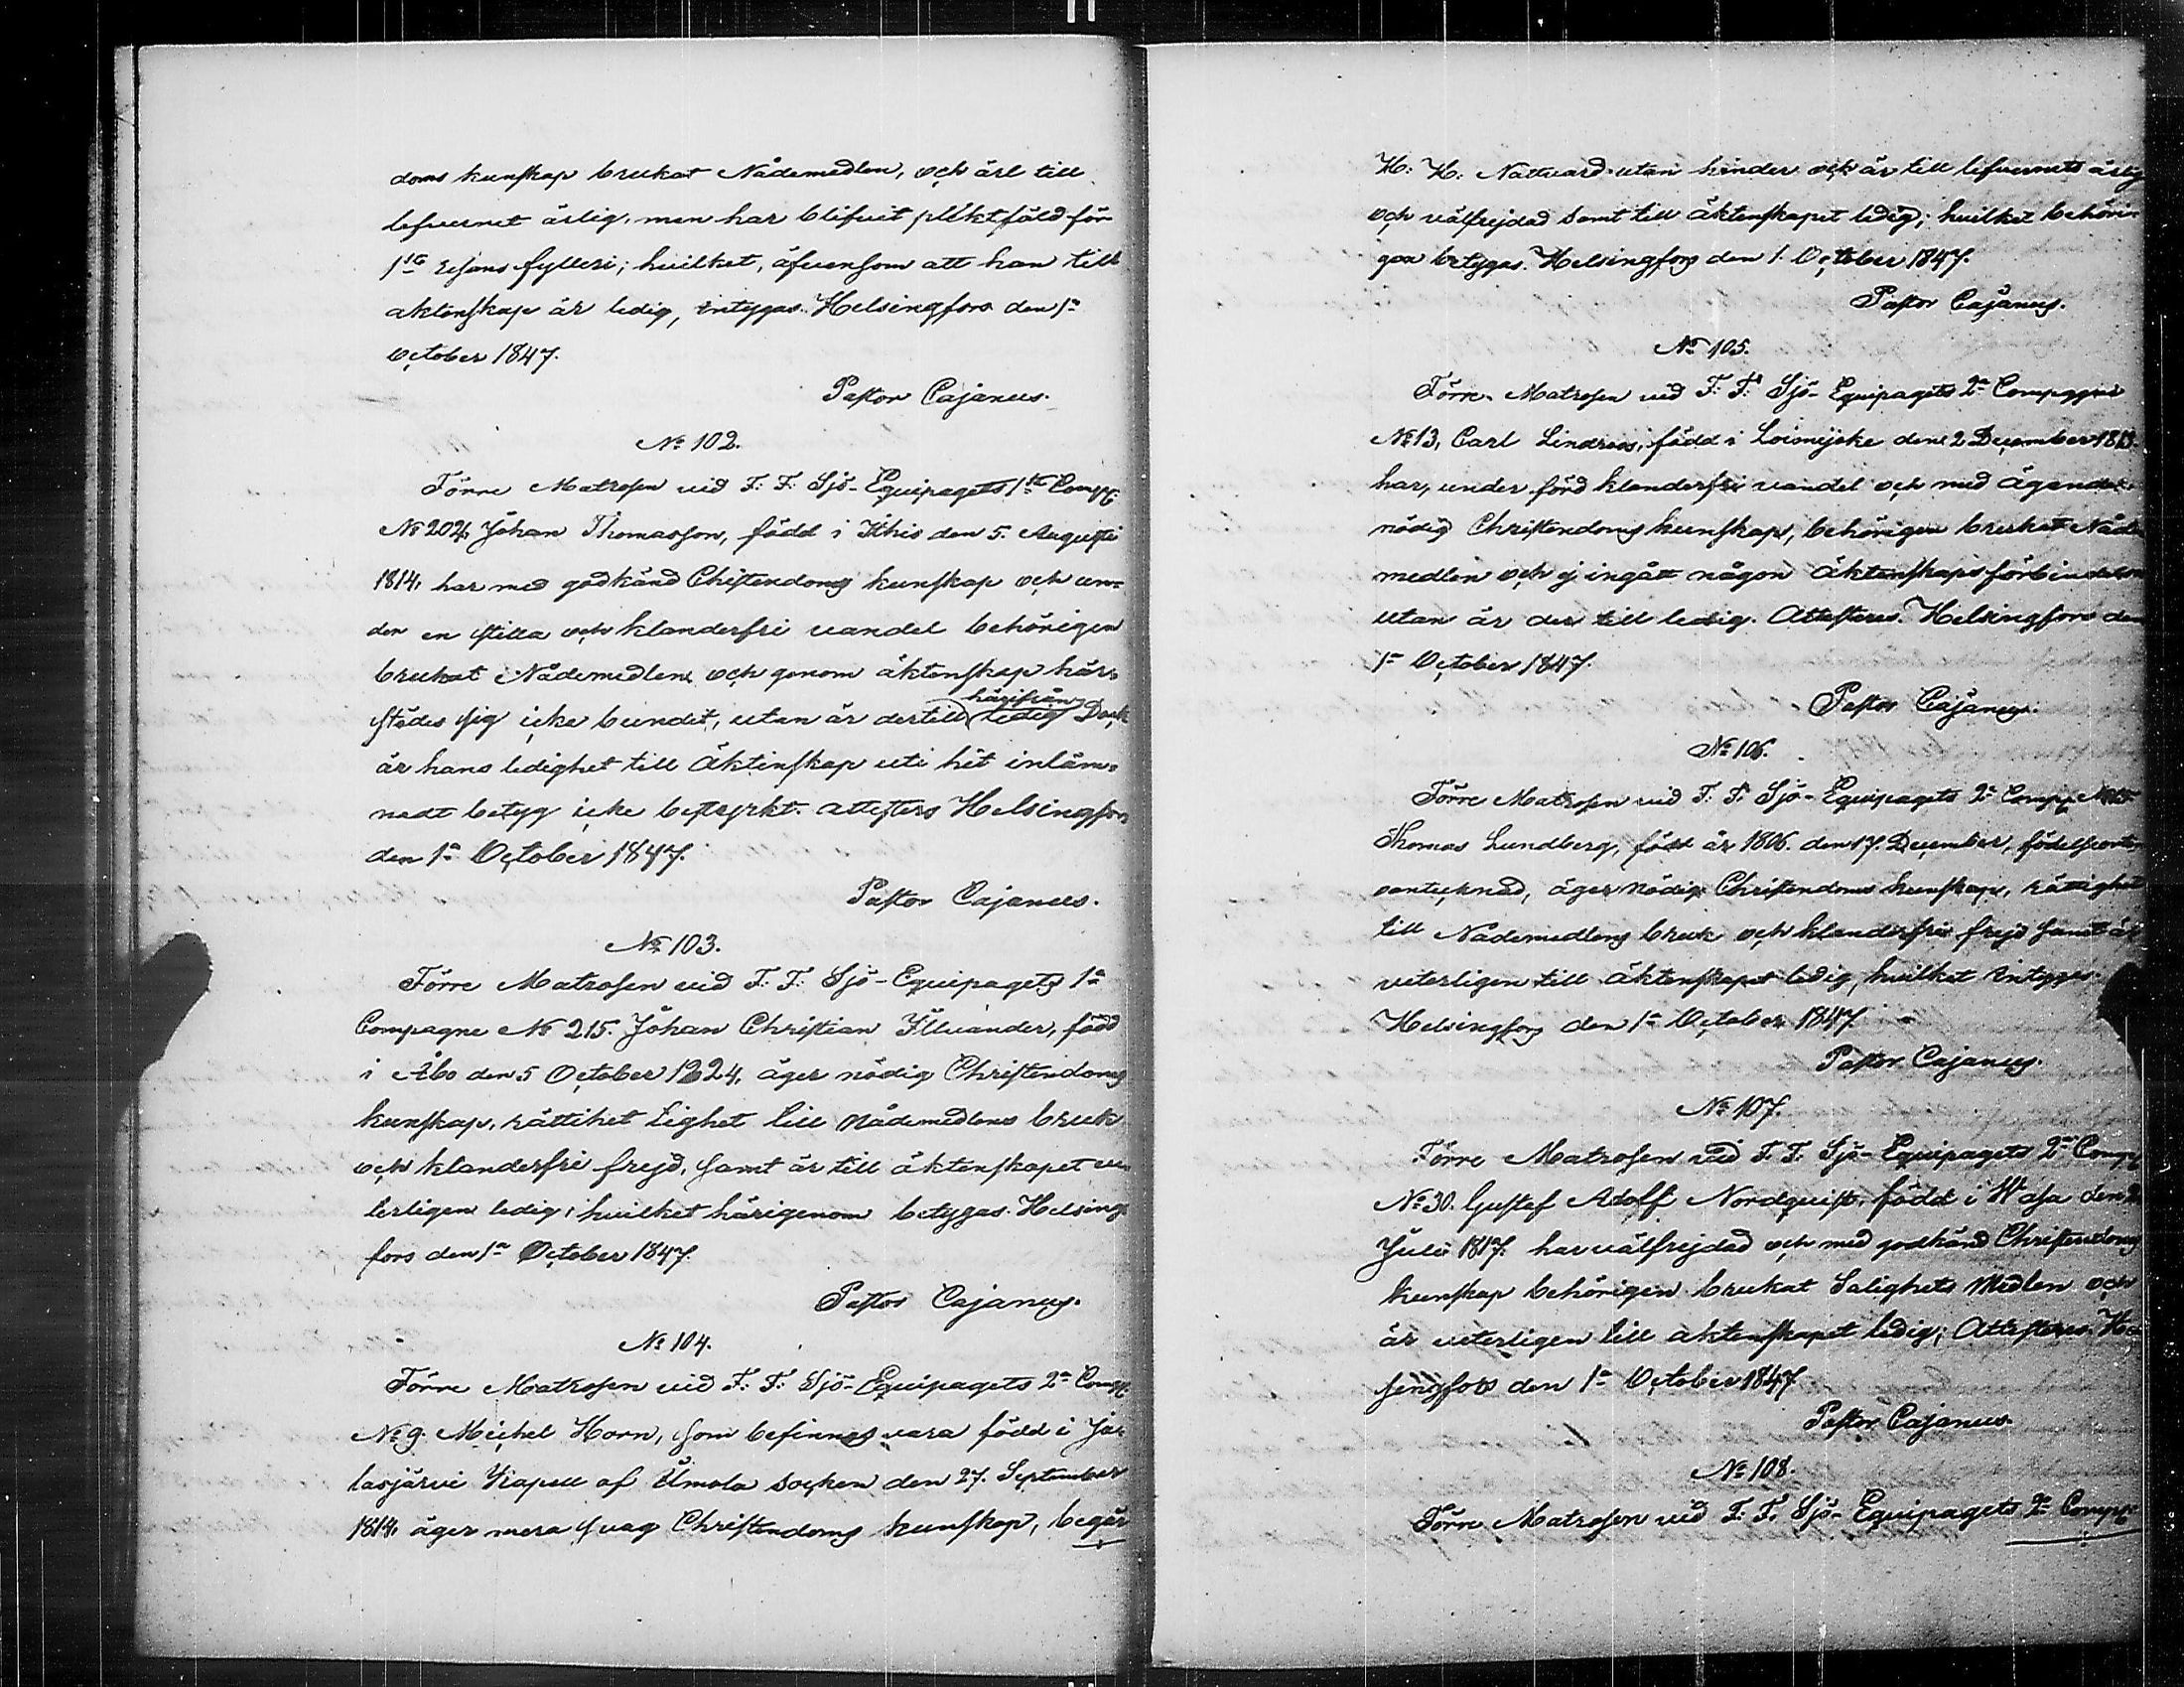 doms kunskap brukat Nådemedlen, och ärl till
lefvernet ärlig, men har blifvit pliktfäld för
1sta resans fylleri; hvilket, äfvensom att han till
aktenskap är ledig, intygas. Helsingfors den 1a
October 1847.
Pastor Cajanus.
No 102.
Förre Matrosen vid F: F: Sjö-Equipagets 1sta Comp:
No 204, Johan Thomasson, född i Ithis den 5. Augusti
1814, har med godkänd Chistendoms kunskap och un-
der en stilla och klanderfri vandel behörigen
brukat Nådemedlen och genom äktenskap här-
städes sig icke bundit, utan är dertill härifrån ledig Dock
är hans ledighet till Äktinskap uti hit inläm-
nadt betyg icke bestyrkt. attesters Helsingfors
den 1a October 1847.
Pastor Cajanus.
No 103.
Förre Matrosen vid F: F: Sjö-Equipagets 1a
Compagne No 215. Johan Christian Illvander, född
i Åbo den 5 October 1824, äger nödig Christendoms
kunskap, rättihet tighet till Nådemedlens bruk
och klanderfri frejd, samt är till äktenskapet vet
terligen ledig; hvilket härigenom betygas. Helsing-
fors den 1a October 1847.
Pastor Cajanus.
No 104.
Förre Matrosen vid F: F: Sjö-Equipagets 2a Comp:
No 9. Michel Horn, som befinnes vara född i Ja-
lasjärvi Kapell af Ilmola socken den 27. September
1814, äger mera svag Christendoms kunskap, begär
H: H: Nattvard utan hinder och är till lefvernets ärlig
och välfrejdad samt till äktenskapet ledig; hvilket behöri-
gen betygas. Helsingfors den 1. October 1847.
Pastor Cajanus.
No 105.
Förre Matrosen vid F: F: Sjö-Equipagets 2a Compagnie
No 13, Carl Lindroos, född i Loimijoke den 2 December 1813.
har, under förd klanderfri vandel och med ägande
nödig Christendoms kunskap, behörigen brukat Nåde
medlen och ej ingått någon äktenskaps förbindelse
utan är der till ledig. Attesteres. Helsingfors den
1a October 1847.
Pastor Cajanus.
No 106.
Förre Matrosen vid F: F: Sjö-Equipagets 2a Comp:
Thomas Lundberg, född år 1806. den 17. December, födelseorten
oantecknad, äger Nödig Christendoms kunskap, rättighet
till Nademedlens bruk och klanderfri frejd samt är
veterligen till äktenskapet ledig, hvilket intygas.
Helsingfors den 1a October 1847.
Pastor Cajanus.
No 107.
Förre Matrosen vid F: F: Sjö-Equipagets 2a Comp:
No 30. Gustef Adolf Nordquist, född i Wasa den
Juli 1817. har välfrejdad och med godkänd Christendoms
kunskap behörigen brukat Salighets Medlen och
är veterligen till aktenskapet ledig; Attesteres. Hel
singfors den 1a October 1847
Pastor Cajanus.
No 108.
Förre Matrosen vid F: F: Sjö-Equipagets 2a Comp: